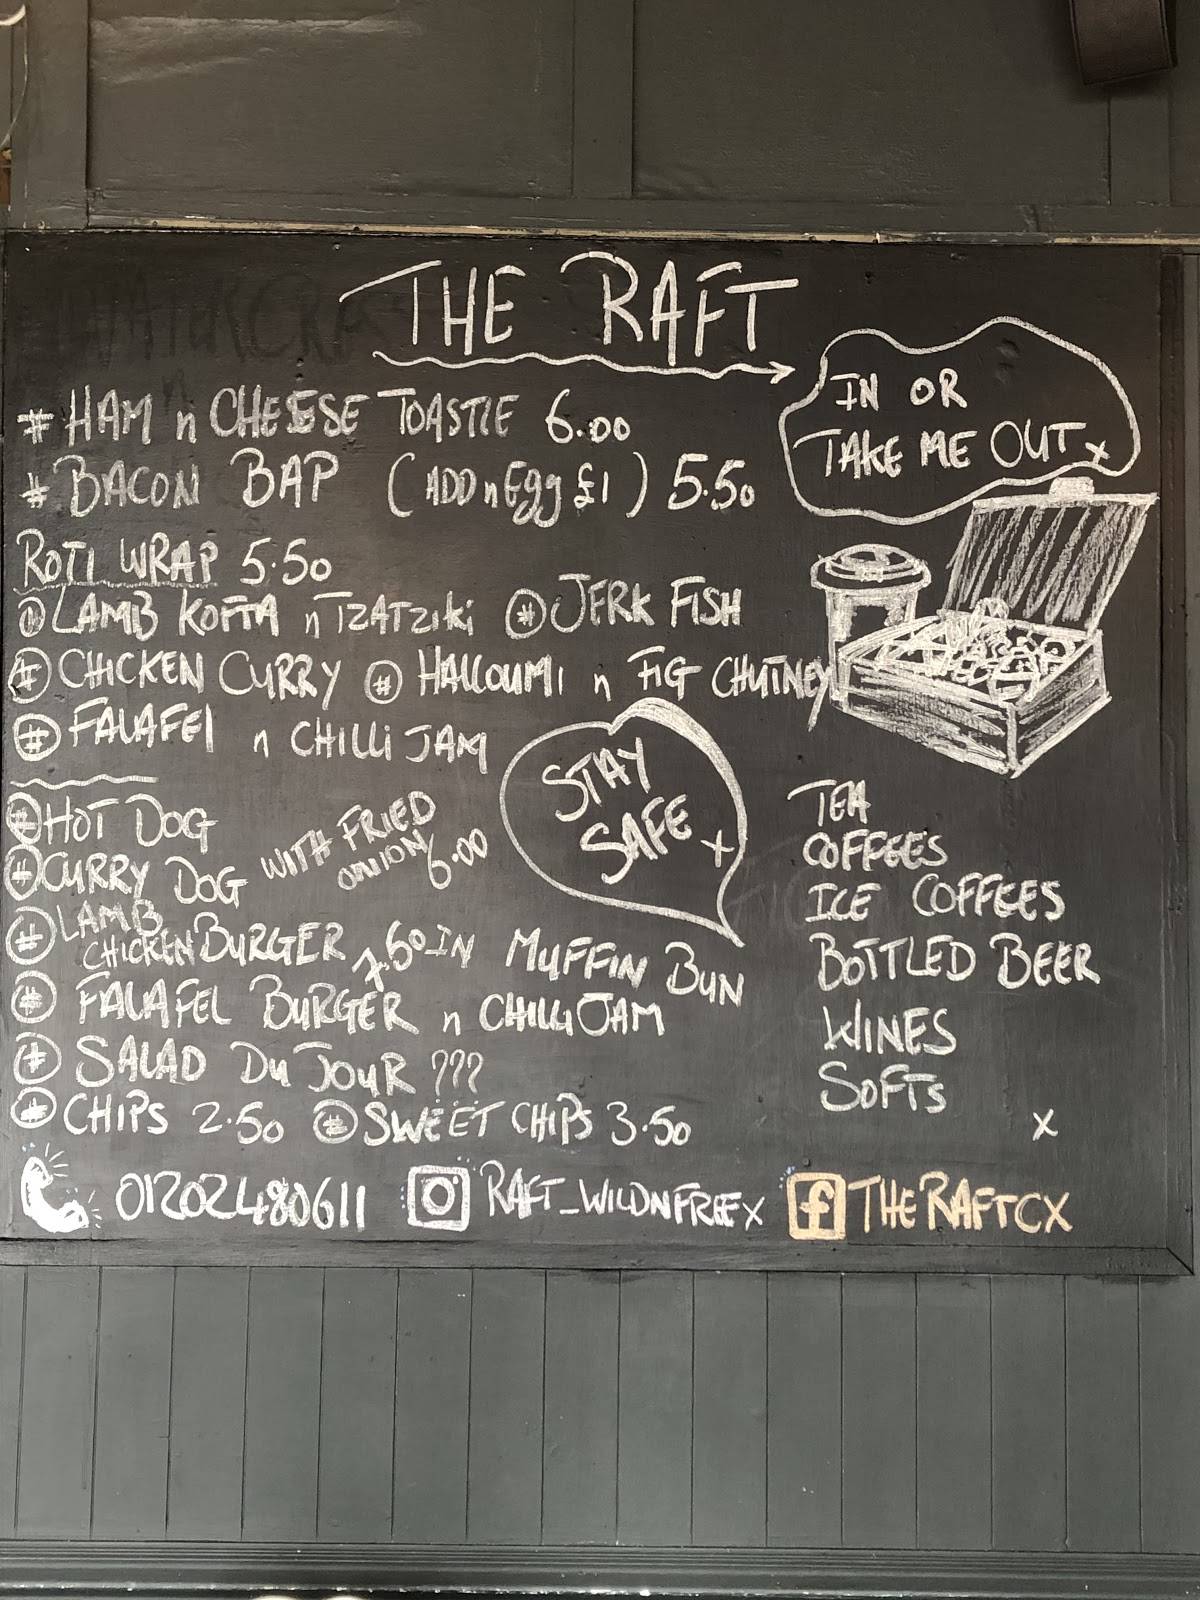 THE RAFT
IN OR
TAKE ME OUT x
# HAM n CHEESE TOASTIE 6.00
# BACON BAP (ADD n Egg £1) 5.50
ROTI WRAP 5.50
# LAMB KOFTA n TZATZiki # JERK FISH
# CHICKEN CURRY # HALLOUMI n FIG CHUTNEY
# FALAFEl n CHILLI JAM
STAY
SAFE x
# HOT DOG
# CURRY DOG WITH FRIED
ONION 6.00
# LAMB
CHICKEN BURGER 7.50 IN MUFFIN BUN
# FALAFEL BURGER n CHILLI JAM
# SALAD DU JOUR ???
# CHIPS 2.50 # SWEET CHIPS 3.50
TEA
COFFEES
ICE COFFEES
BOTTLED BEER
WINES
SOFTS
x
01202480611 RAFT_WILDNFREEX f THERAFTCX